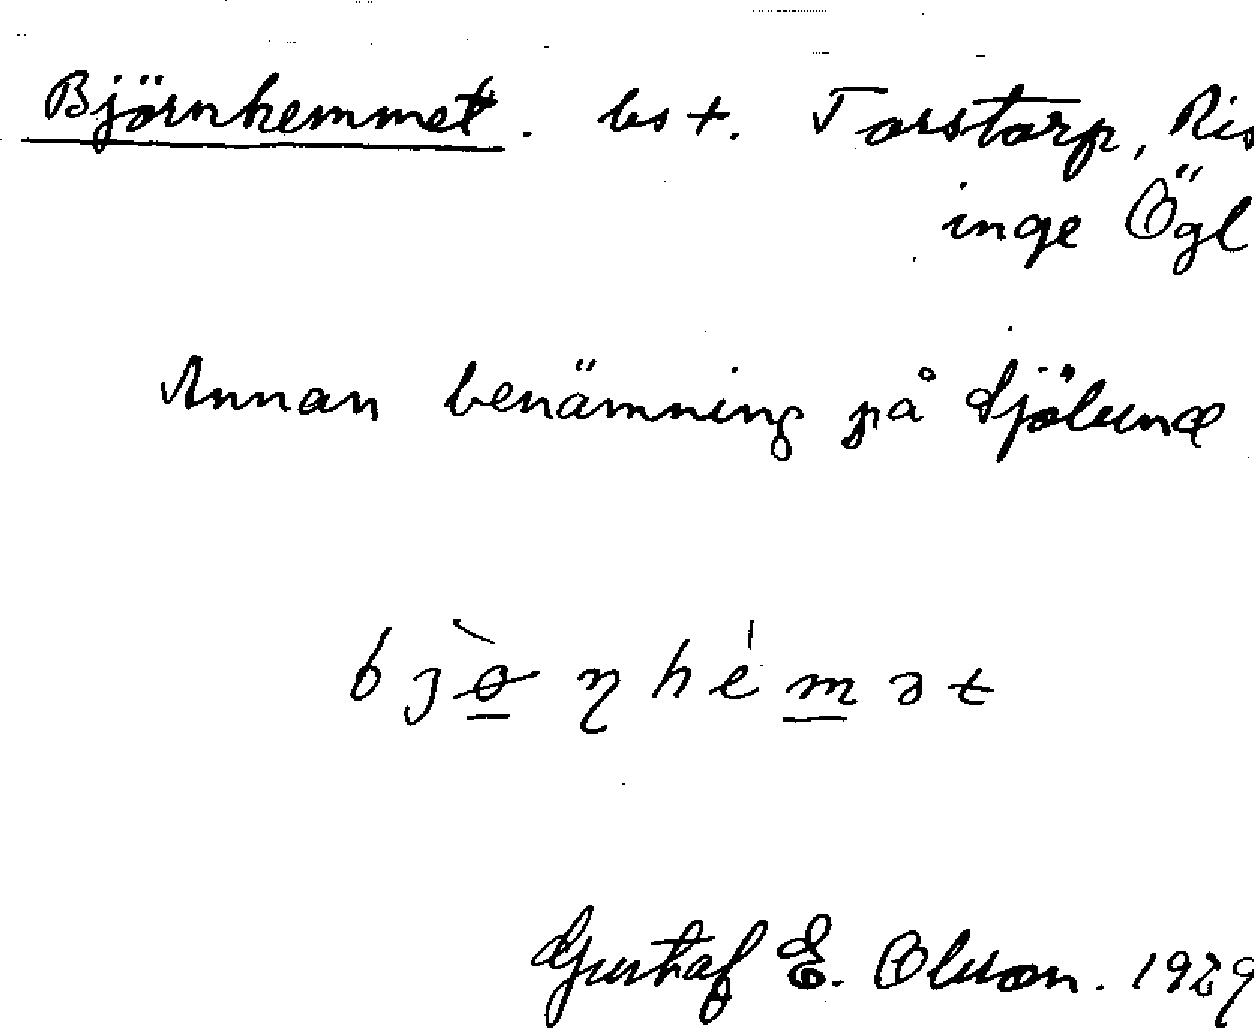 Björnhemmet. bst. Torstorp, Ris
inge Ögl
Annan benämning på Sjölund
bjɵ̀ŋhémət
Gustaf E. Olsson. 1929